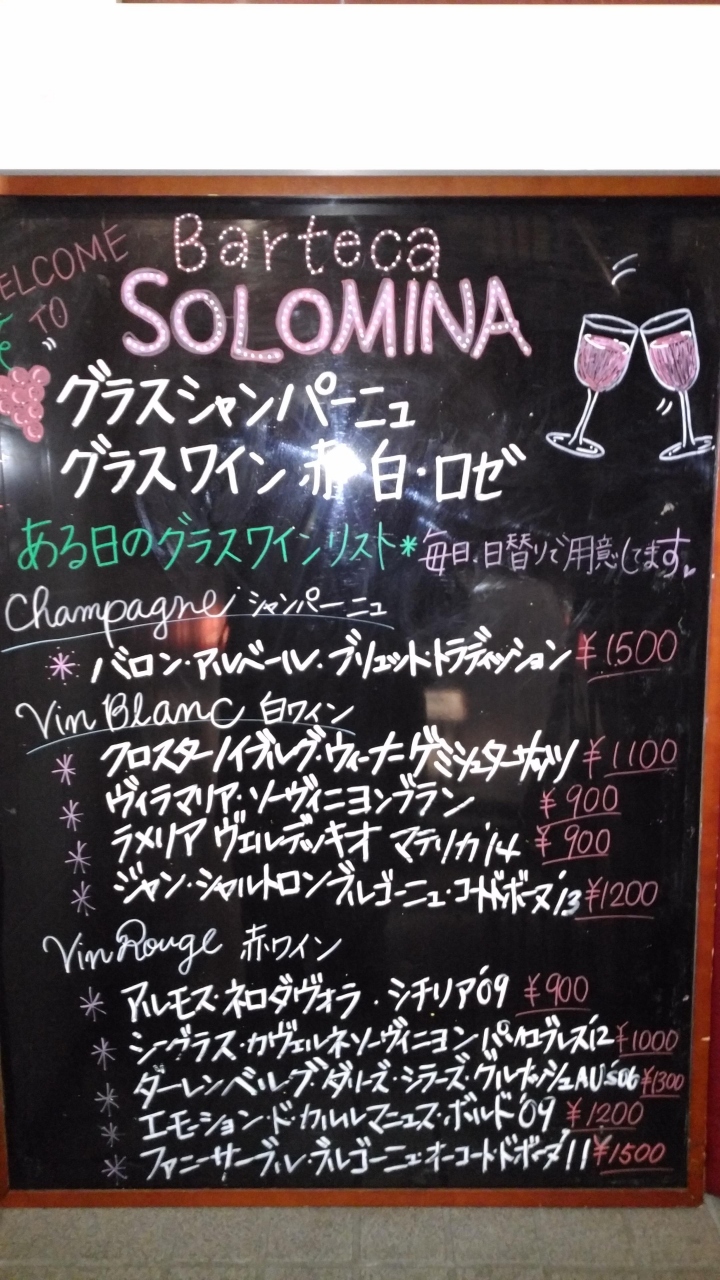 WELCOME
TO
Barteca
SOLOMINA
グラスシャンパーニュ
グラスワイン 赤・白・ロゼ
ある日のグラスワインリスト*毎日、日替りで用意してます
Champagne シャンパーニュ
* バロン・アルベール・ブリュット・トラディッション ¥1500
Vin Blanc 白ワイン
* クロスターノイブルグ・ウィーナーゲミシュターサッツ ¥1100
* ヴィラマリア・ソーヴィニヨンブラン ¥900
* ラメリア ヴェルデッキオ マテリカ'14 ¥900
* ジャン・シャルトロンブルゴーニュ・コートドボーヌ'13 ¥1200
Vin Rouge 赤ワイン
* アルモス・ネロダヴォラ・シチリア'09 ¥900
* シーグラス・カヴェルネソーヴィニヨン パソロブレス'12 ¥1000
* ダーレンベルグ・ダリーズ・シラーズ・グルナッシュAUS'06 ¥1300
* エモーション・ド・カルルマニュス・ボルドー'09 ¥1200
* ファニーサーブル・ブルゴーニュオーコートドボーヌ'11 ¥1500